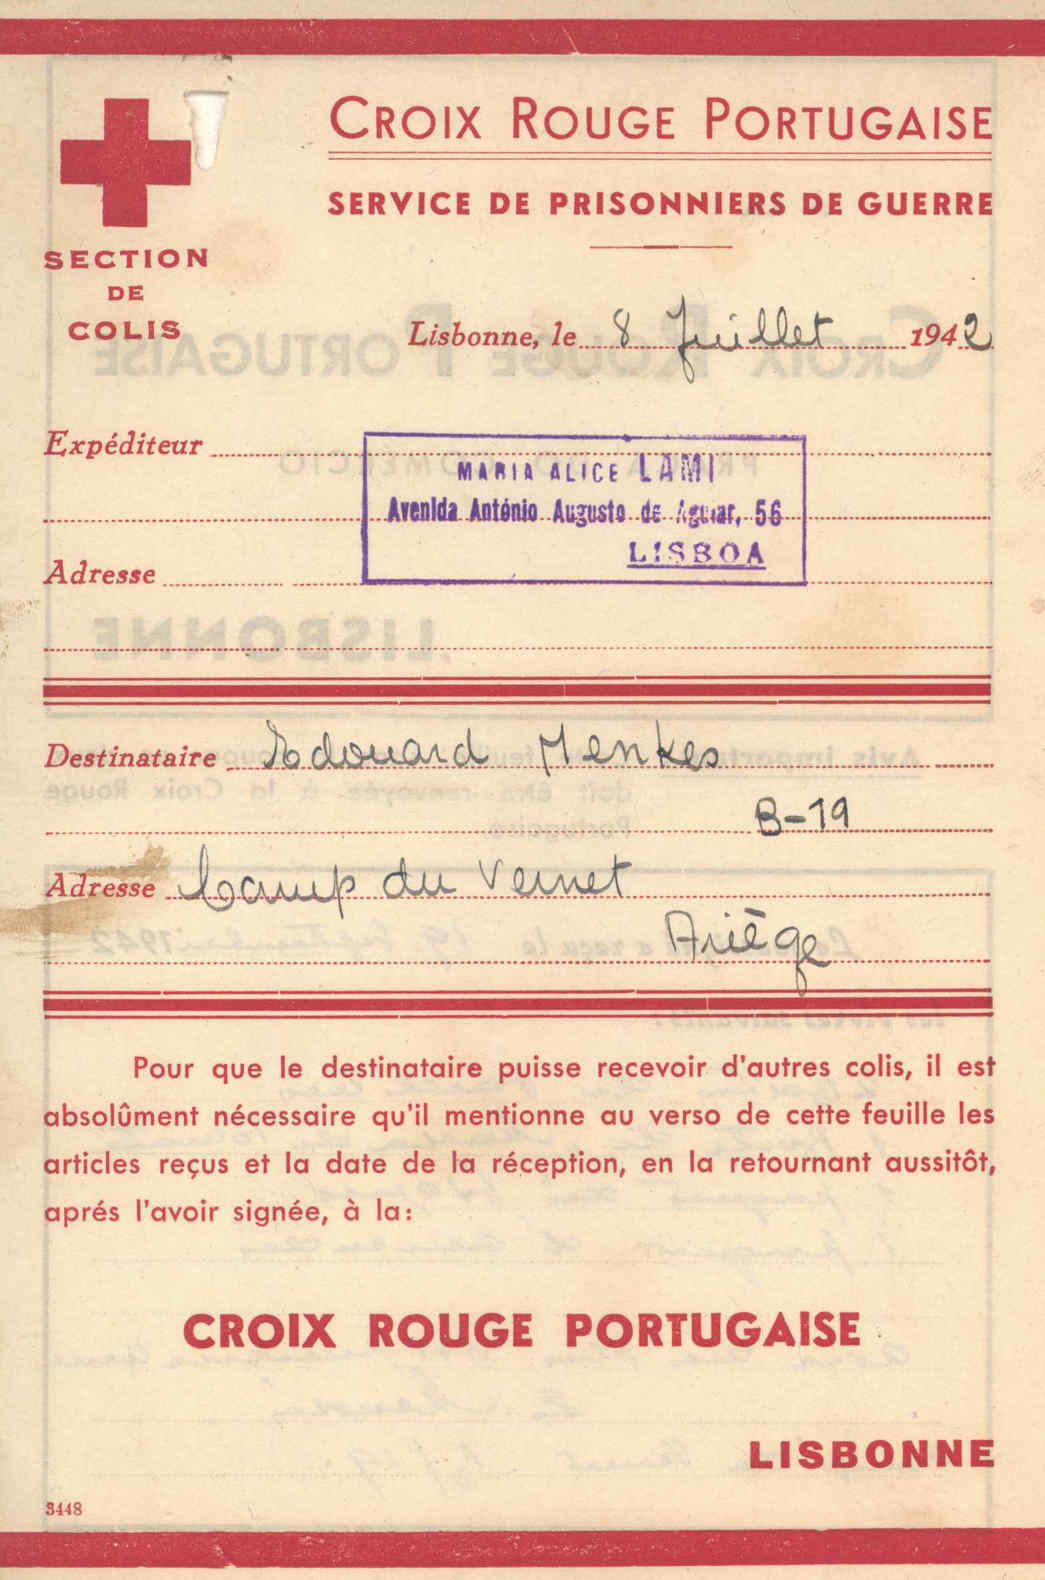 CROIX ROUGE PORTUGAISE
SERVICE DE PRISONNIERS DE GUERRE
SECTION
DE
COLIS
Lisbonne, le 8 Juillet 1942
Expéditeur
MARIA ALICE LAMI
Avenida António Augusto de Aguiar, 56
LISBOA
Adresse
Destinataire Edouard Menkes
B-19
Adresse Camp du Vernet
Ariège
Pour que le destinataire puisse recevoir d'autres colis, il est
absolûment nécessaire qu'il mentionne au verso de cette feuille les
articles reçus et la date de la réception, en la retournant aussitôt,
aprés l'avoir signée, à la:
CROIX ROUGE PORTUGAISE
LISBONNE
3448